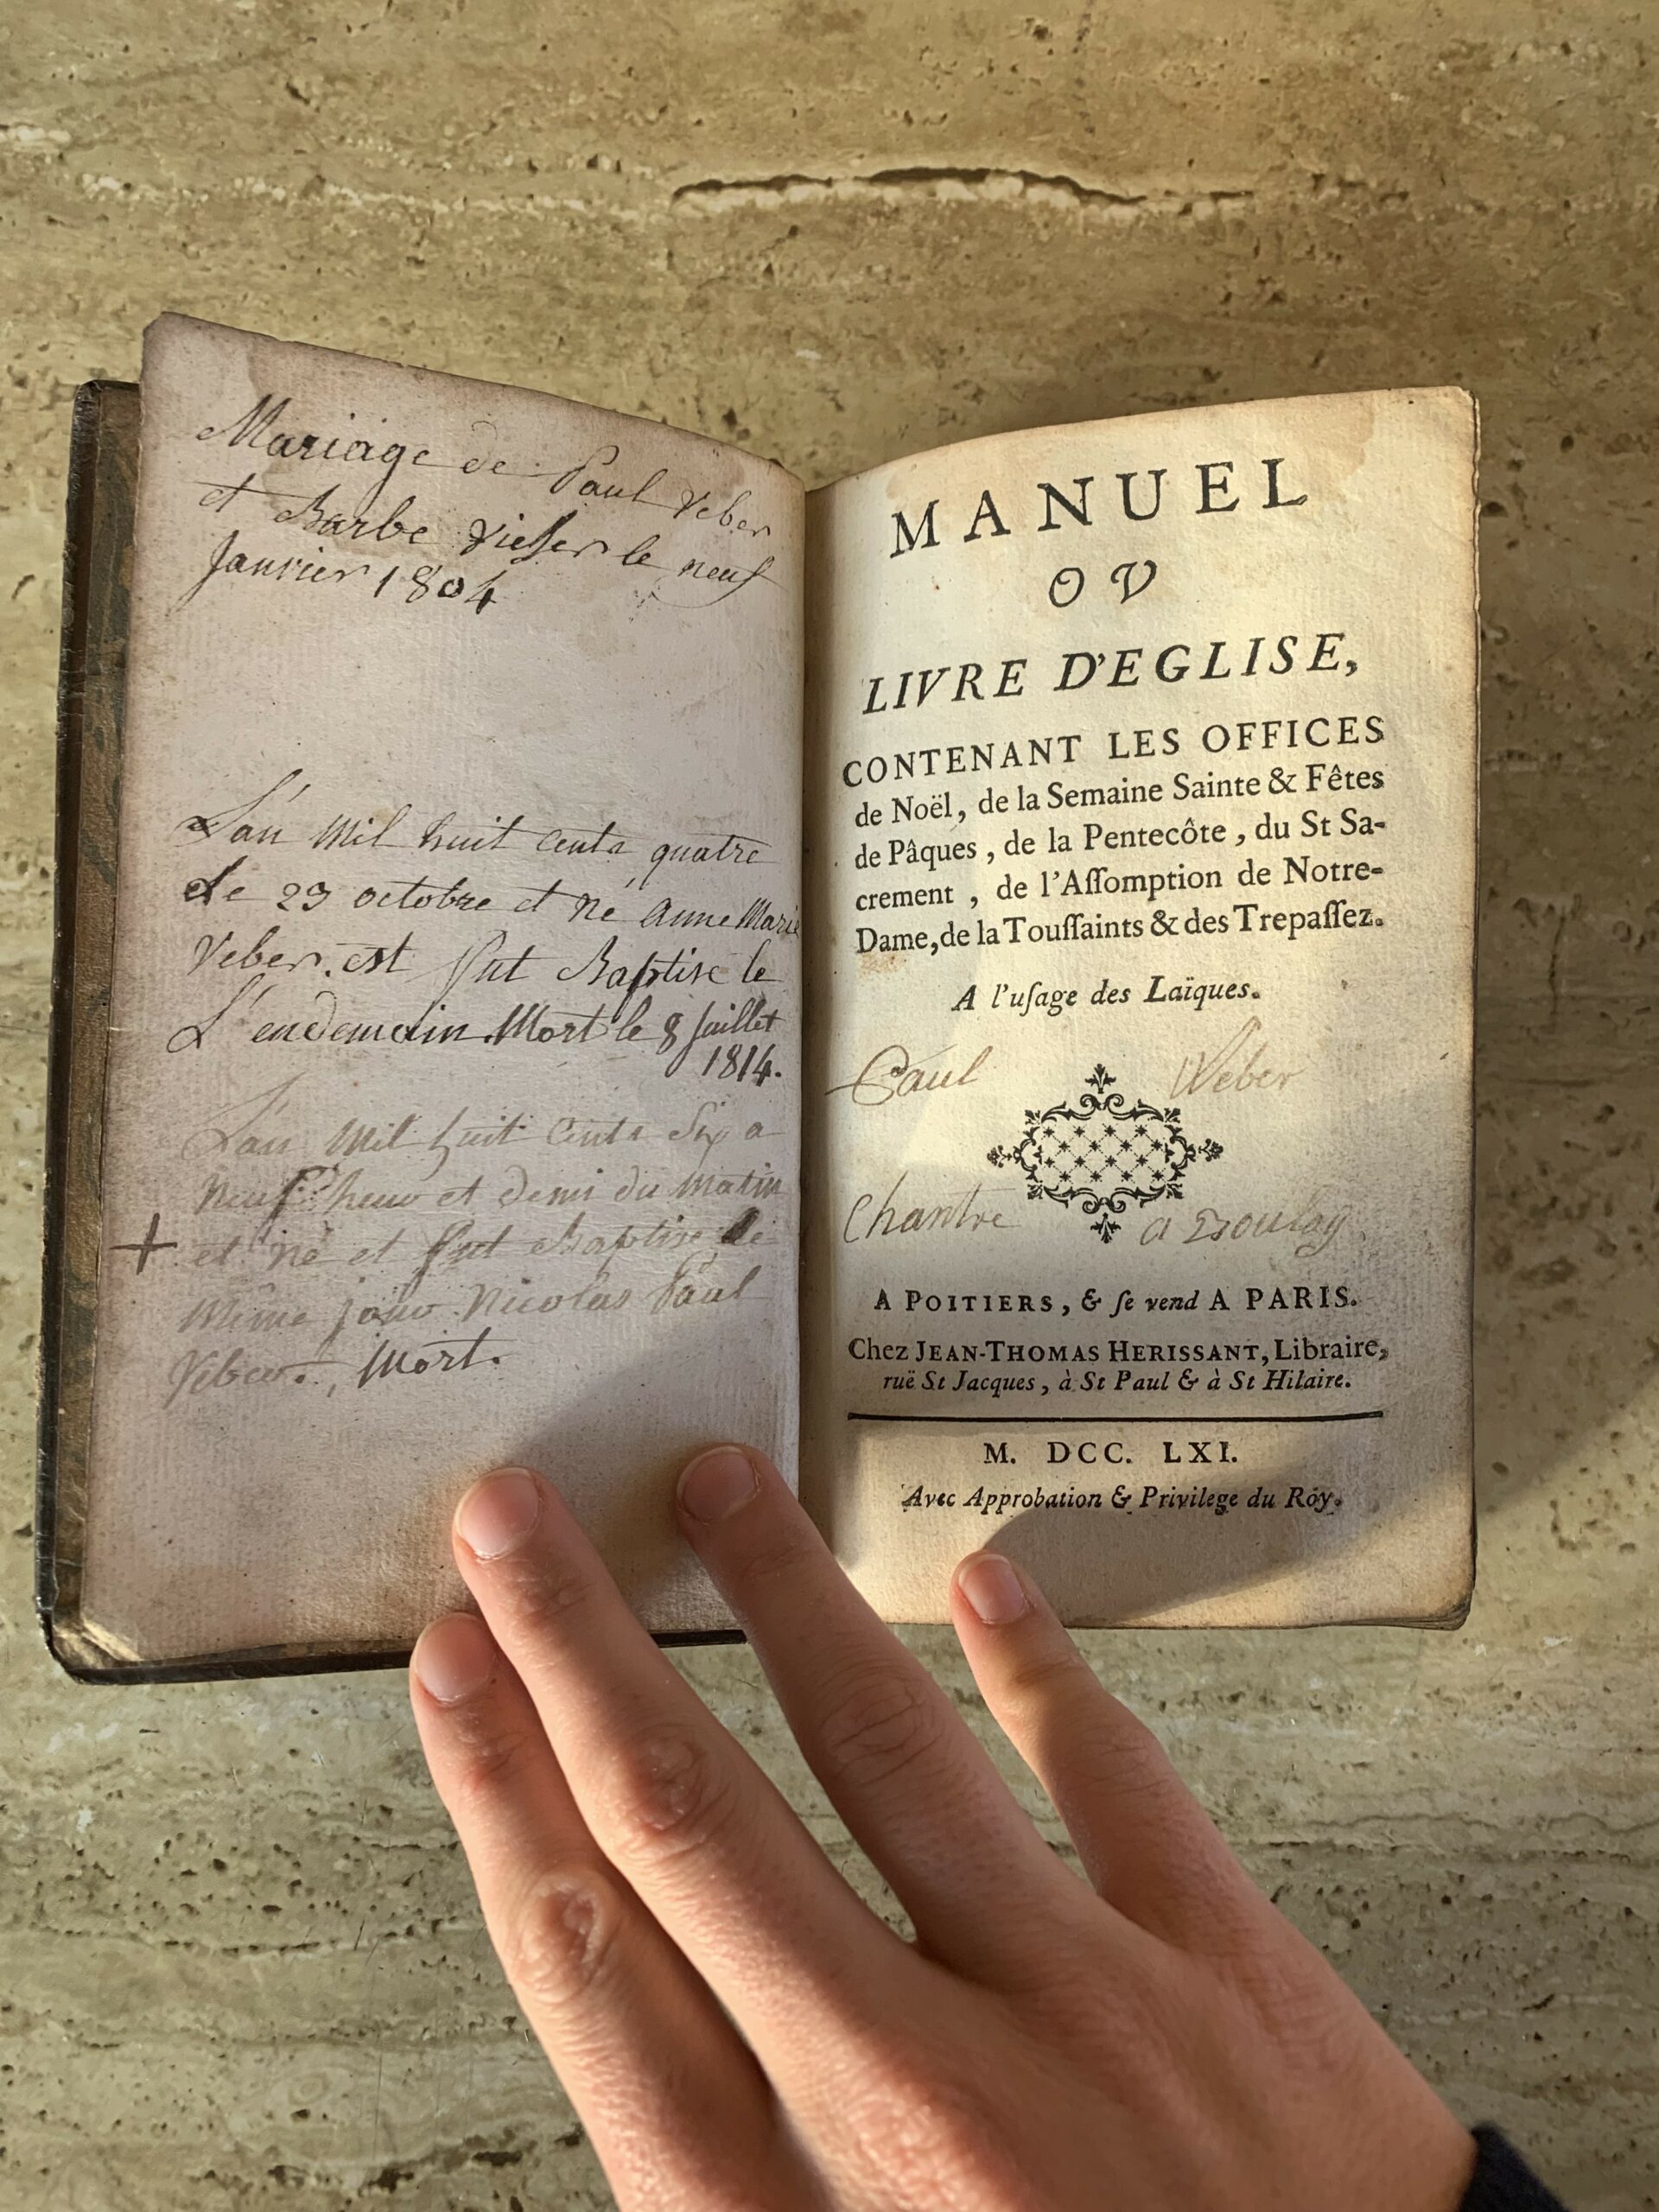 Mariage de Paul Veber
et Barbe le neuf
Janvier 1804
L'an Mil huit Cents quatre
Le 29 octobre et né Anne Marie
Veber. est fut Baptise le
L'endemain. Mort le 8 Juillet
1814.
L'an Mil huit Cents Six a
Neuf heur et demi du matin
+ et né et fut Baptise le
Même jour Nicolas Paul
Veber. Mort.
MANUEL
OV
LIVRE D'EGLISE,
CONTENANT LES OFFICES
de Noël, de la Semaine Sainte & Fêtes
de Pâques, de la Pentecôte, du St Sa-
crement, de l'Aſſomption de Notre-
Dame, de la Touſſaints & des Trepaſſez.
A l'uſage des Laïques.
Paul Weber
Chantre a
A POITIERS, & ſe vend A PARIS.
Chez JEAN-THOMAS HERISSANT, Libraire,
ruë St Jacques, à St Paul & à St Hilaire.
M. DCC. LXI.
Avec Approbation & Privilege du Roy.